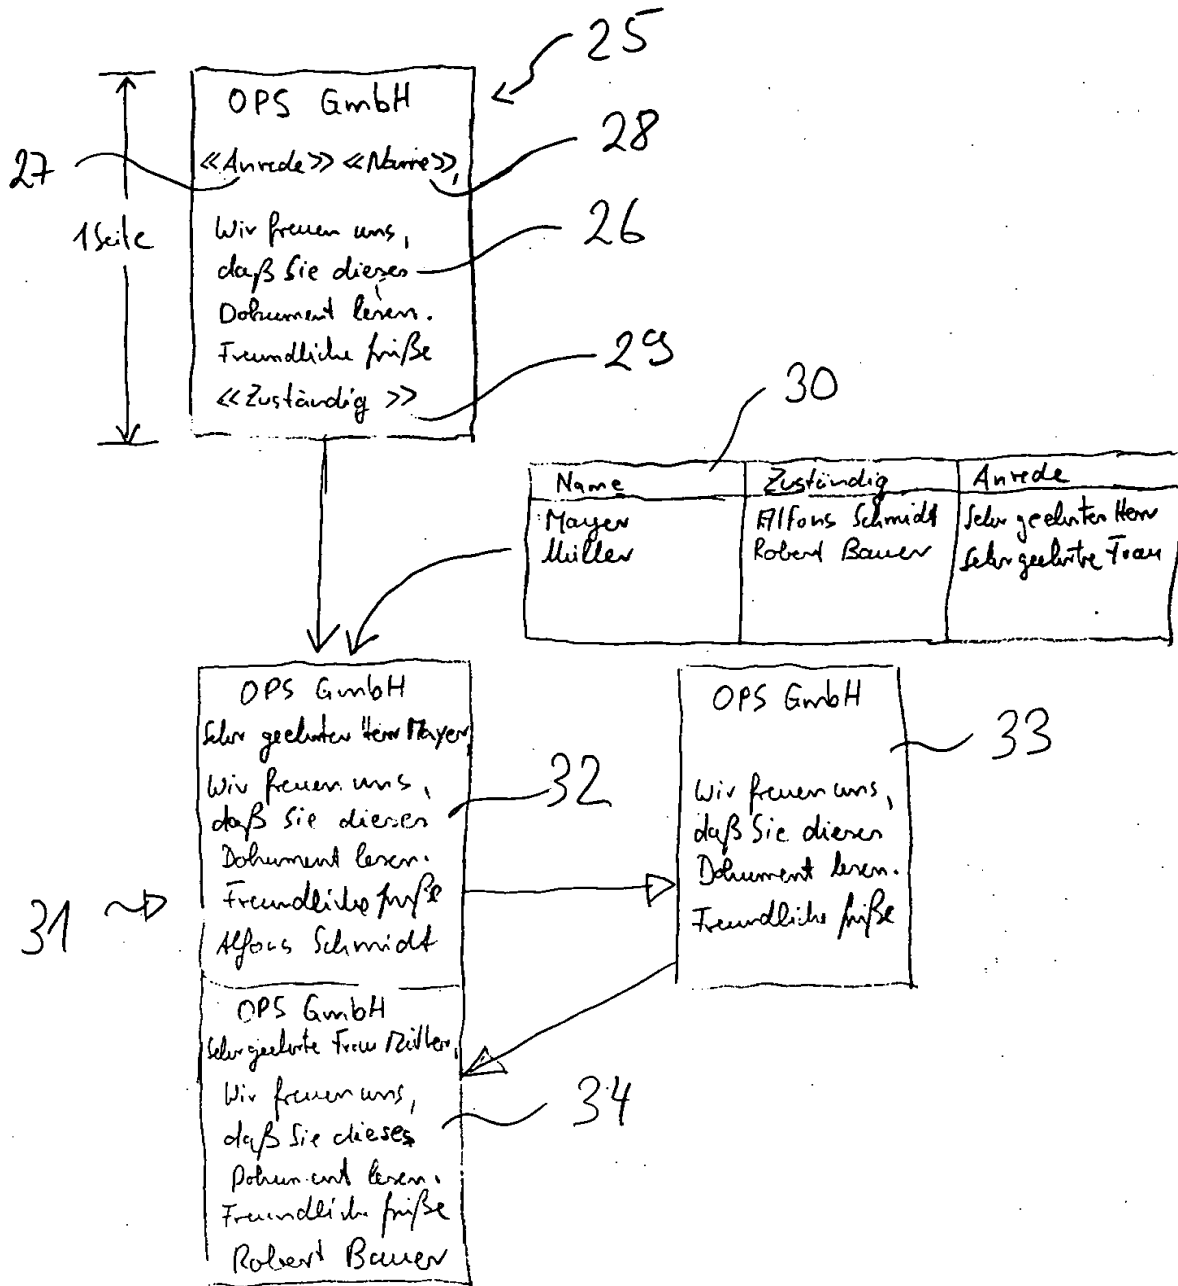 25
OPS GmbH
27
28
«Anrede» «Name»,
1 Seite
Wir freuen uns,
26
daß Sie dieses
Dokument lesen.
Freundliche Grüße
29
«Zuständig»
30
Name Zuständig Anrede
Mayer Alfons Schmidt Sehr geehrter Herr
Müller Robert Bauer Sehr geehrte Frau
OPS GmbH
Sehr geehrter Herr Mayer,
Wir freuen uns,
32
daß Sie dieses
Dokument lesen.
Freundliche Grüße
31
Alfons Schmidt
OPS GmbH
33
Wir freuen uns,
daß Sie dieses
Dokument lesen.
Freundliche Grüße
OPS GmbH
Sehr geehrte Frau Müller,
Wir freuen uns,
34
daß Sie dieses
Dokument lesen.
Freundliche Grüße
Robert Bauer